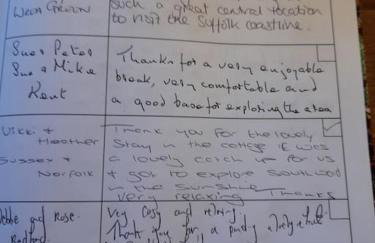 such a great central location
to visit the Suffolk coastline.
Sue & Peter
Sue & Mike
Kent
Thanks for a very enjoyable
break, very comfortable and
a good base for exploring the area
Vikki +
Heather
Sussex +
Norfolk
Thank you for the lovely
stay in the cottage it was
a lovely catch up for us
+ got to explore Southwold
in the sunshine
very relaxing Thanks
Debbie and Rose.
Very cosy and relaxing.
Thank you for a